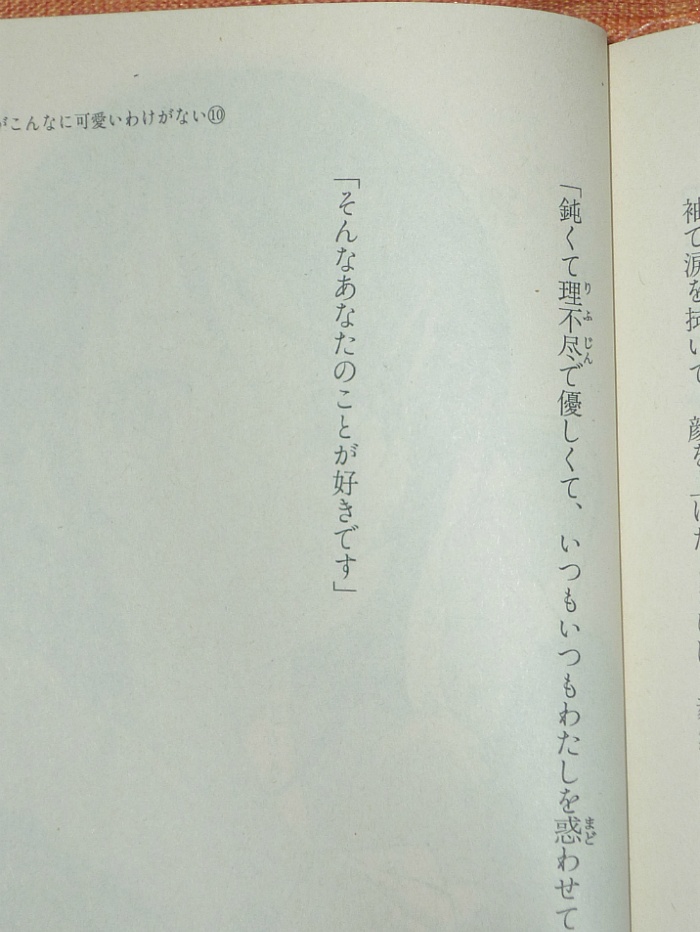 袖で涙を拭いて、顔を上げた
「鈍くて理不尽で優しくて、いつもいつもわたしを惑わせて
「そんなあなたのことが好きです」
がこんなに可愛いわけがない⑩